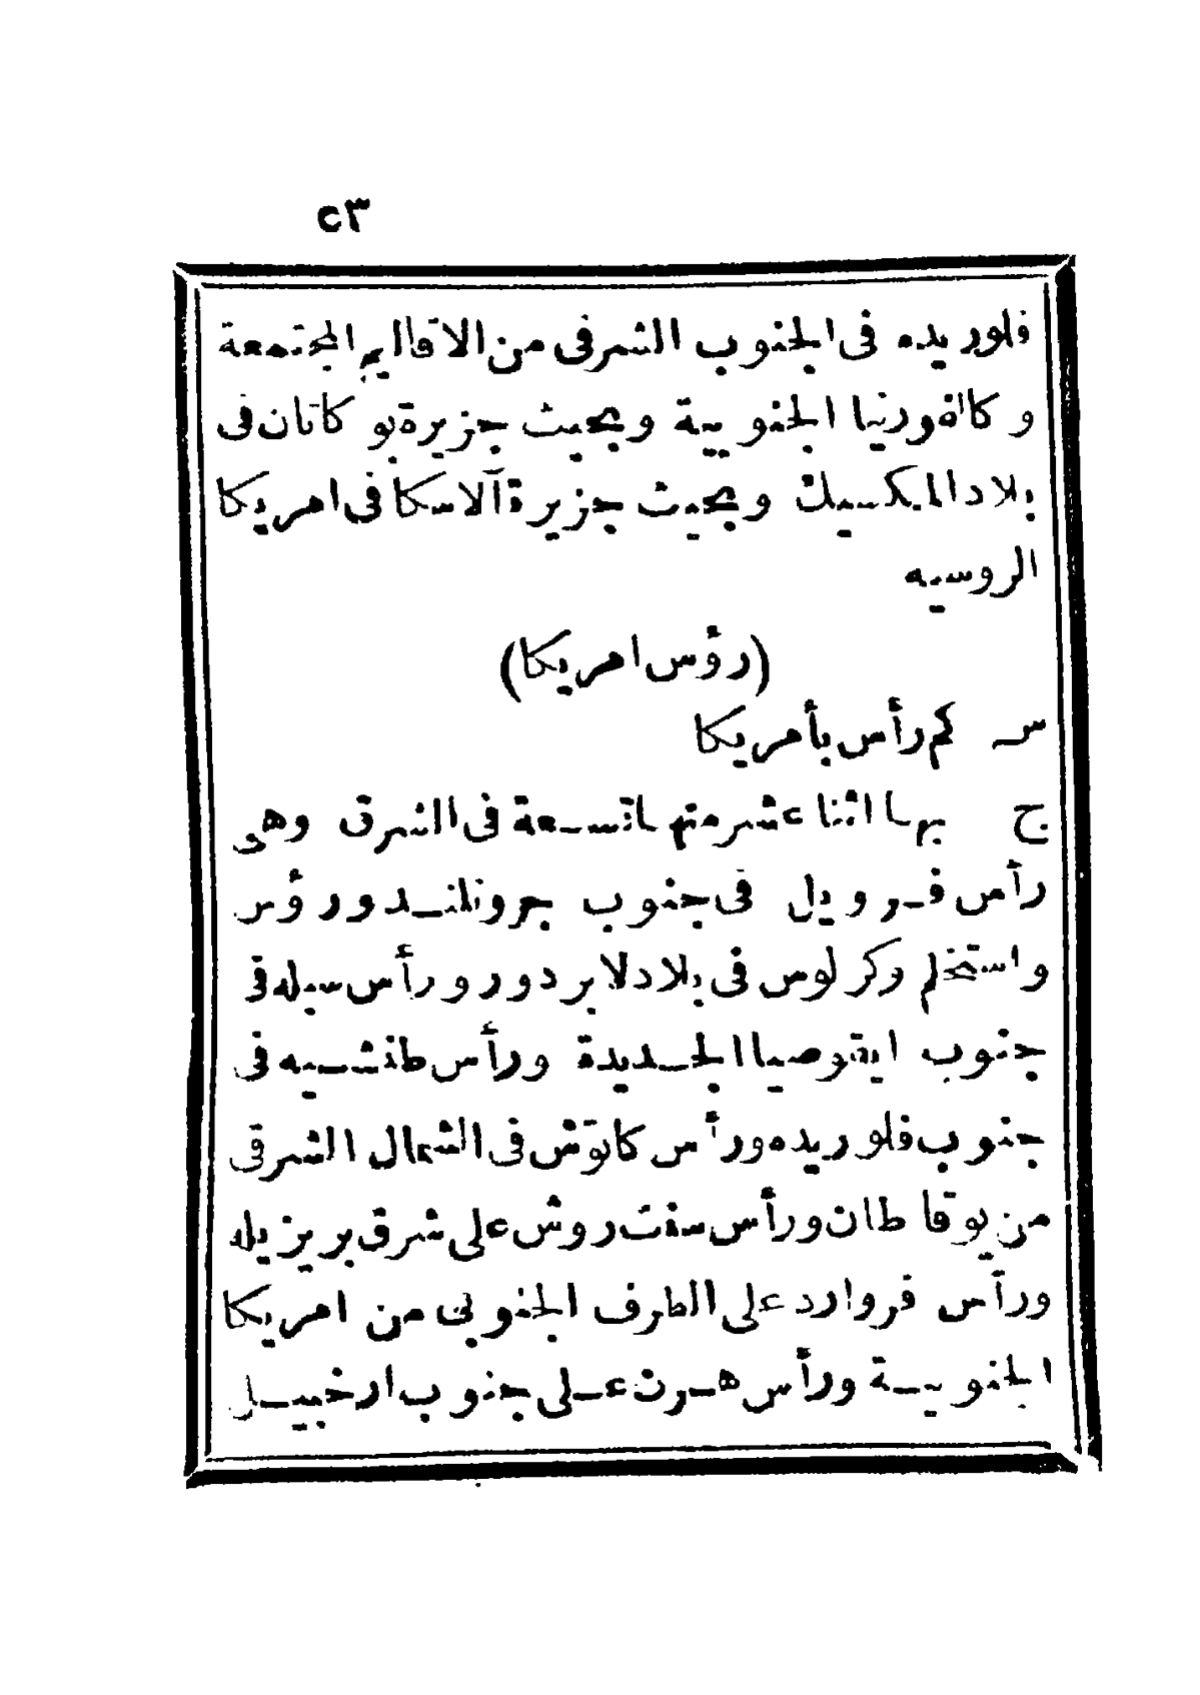 ٢٣
فلوريده فى الجنوب الشرقى من الاقاليم المجتمعة
وكالفورنيا الجنوبية وبحيث جزيرة يوكاتان فى
بلاد المكسيك وبحيث جزيرة آلاسكا فى امريكا
الروسيه
(رؤس امريكا)
س كم رأس بأمريكا
ج بها اثنا عشر منها تسعة فى الشرق وهى
رأس فرويل فى جنوب جرونلند ورؤس
واستخلم وكرلوس فى بلاد لابردور ورأس سبله فى
جنوب ايقوصيا الجديدة ورأس طنشيه فى
جنوب فلوريده ورأس كاتوش فى الشمال الشرقى
من يوقاطان ورأس سنت روش على شرق بريزيله
ورأس فروارد على الطرف الجنوبى من امريكا
الجنوبية ورأس هرن على جنوب ارخبيل